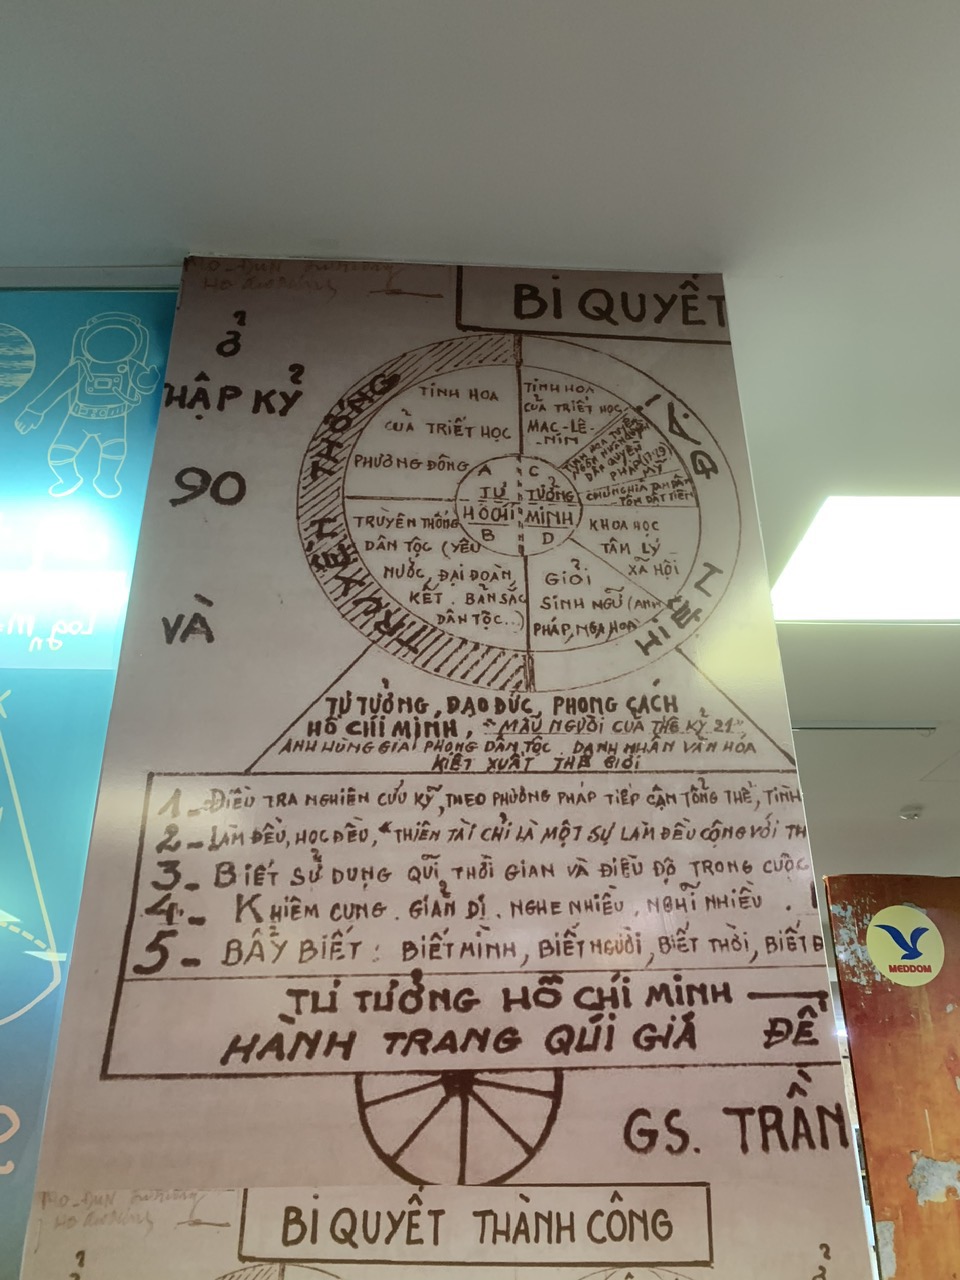 BÍ QUYẾT
Ở
THẬP KỶ
90
VÀ
TRUYỀN THỐNG
HIỆN ĐẠI
TINH HOA
CỦA TRIẾT HỌC
PHƯƠNG ĐÔNG
TINH HOA
CỦA TRIẾT HỌC
MAC-LÊ-
-NIN
DÂN QUYỀN
PHÁP
MỸ
A C
TƯ TƯỞNG
HỒ CHÍ MINH
B D
TRUYỀN THỐNG
DÂN TỘC (YÊU
NƯỚC, ĐẠI ĐOÀN
KẾT. BẢN SẮC
DÂN TỘC...)
KHOA HỌC
TÂM LÝ
XÃ HỘI
GIỎI
SINH NGỮ (ANH
PHÁP, NGA HOA
TƯ TƯỞNG, ĐẠO ĐỨC, PHONG CÁCH
HỒ CHÍ MINH, "MẪU NGƯỜI CỦA THẾ KỶ 21"
ANH HÙNG GIẢI PHÓNG DÂN TỘC. DANH NHÂN VĂN HÓA
KIỆT XUẤT THẾ GIỚI
1- ĐIỀU TRA NGHIÊN CỨU KỸ, THEO PHƯƠNG PHÁP TIẾP CẬN TỔNG THỂ, TÍNH
2- LÀM ĐỀU, HỌC ĐỀU, "THIÊN TÀI CHỈ LÀ MỘT SỰ LÀM ĐỀU CỘNG VỚI TH
3- BIẾT SỬ DỤNG QUĨ THỜI GIAN VÀ ĐIỀU ĐỘ TRONG CUỘC
4- KHIÊM CUNG. GIẢN DỊ. NGHE NHIỀU, NGHĨ NHIỀU.
5- BẨY BIẾT: BIẾT MÌNH, BIẾT NGƯỜI, BIẾT THỜI, BIẾT
TƯ TƯỞNG HỒ CHÍ MINH —
HÀNH TRANG QÚI GIÁ ĐỂ
GS. TRẦN
MEDDOM
BÍ QUYẾT THÀNH CÔNG